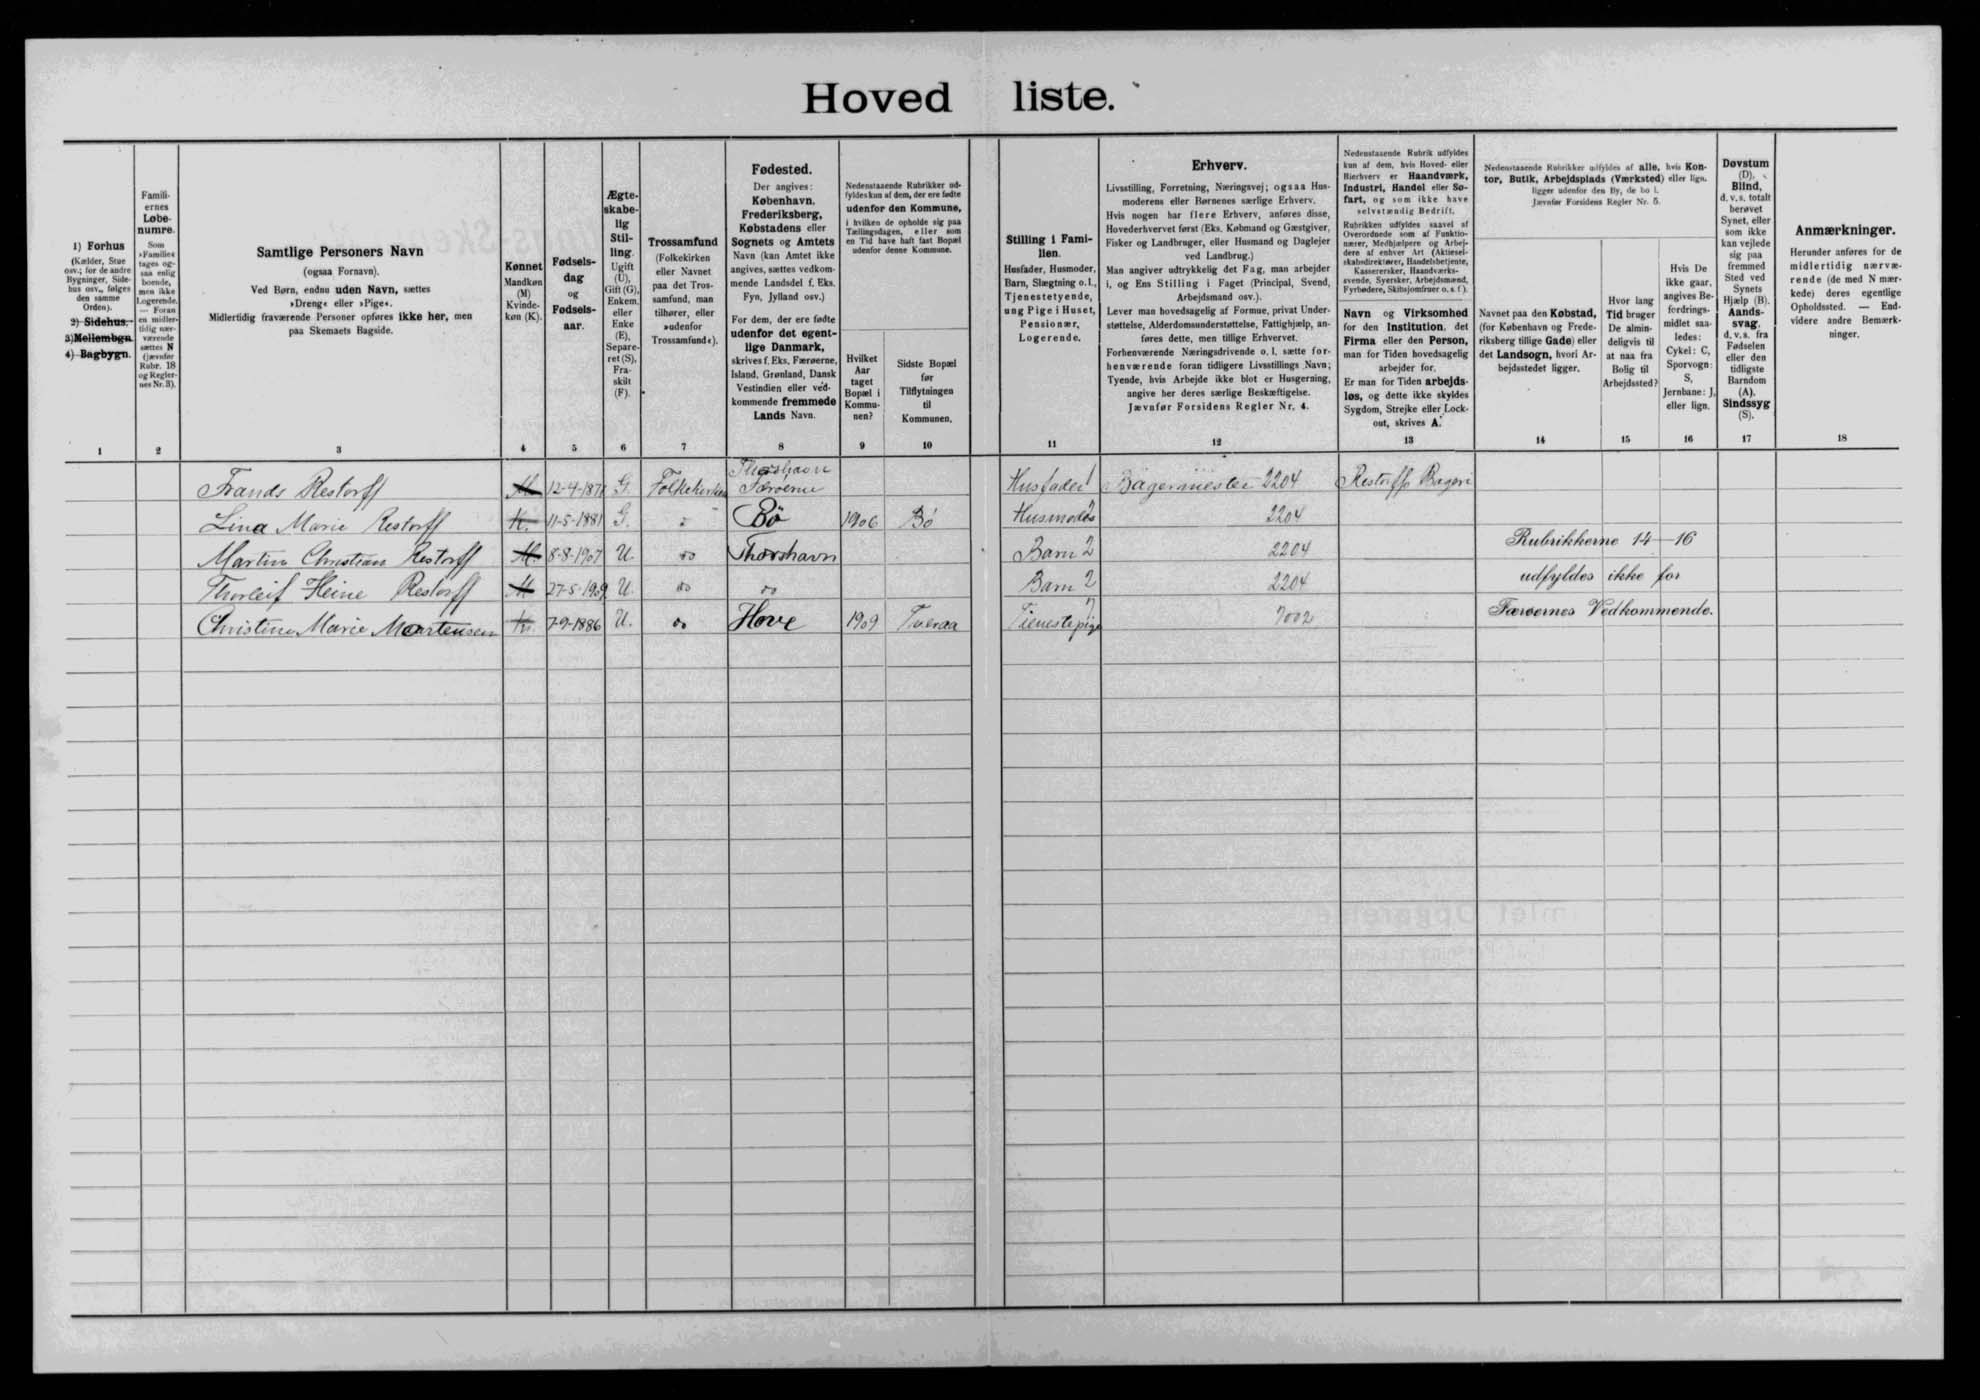 Hovedliste.
1) Forhus
(Kælder, Stue
osv.; for de andre
Bygninger, Side-
hus osv., følges
den samme
Orden).
2) Sidehus.
3) Mellembgn.
4) Bagbygn.
1
Famili-
ernes
Løbe-
numre.
Som
»Familie«
tages og-
saa enlig
boende,
men ikke
Logerende.
— Foran
en midler-
tidig nær-
værende
sættes N
(jævnfør
Rubr. 18
og Regler-
nes Nr. 3).
2
Samtlige Personers Navn
(ogsaa Fornavn).
Ved Børn, endnu uden Navn, sættes
»Dreng« eller »Pige«.
Midlertidig fraværende Personer opføres ikke her, men
paa Skemaets Bagside.
3
Kønnet
Mandkøn
(M)
Kvinde-
køn (K).
4
Fødsels-
dag
og
Fødsels-
aar.
5
Ægte-
skabe-
lig
Stil-
ling.
Ugift
(U),
Gift (G),
Enkem.
eller
Enke
(E),
Separe-
ret (S),
Fra-
skilt
(F).
6
Trossamfund
(Folkekirken
eller Navnet
paa det Tros-
samfund, man
tilhører, eller
»udenfor
Trossamfund«).
7
Fødested.
Der angives:
København,
Frederiksberg,
Købstadens eller
Sognets og Amtets
Navn (kan Amtet ikke
angives, sættes vedkom-
mende Landsdel f. Eks.
Fyn, Jylland osv.)
For dem, der ere fødte
udenfor det egent-
lige Danmark,
skrives f. Eks. Færøerne,
Island, Grønland, Dansk
Vestindien eller ved-
kommende fremmede
Lands Navn.
8
Nedenstaaende Rubrikker ud-
fyldes kun af dem, der ere fødte
udenfor den Kommune,
i hvilken de opholde sig paa
Tællingsdagen, eller som
en Tid have haft fast Bopæl
udenfor denne Kommune.
Hvilket
Aar
taget
Bopæl i
Kommu-
nen?
9
Sidste Bopæl
før
Tilflytningen
til
Kommunen.
10
Stilling i Fami-
lien.
Husfader, Husmoder,
Barn, Slægtning o. l.,
Tjenestetyende,
ung Pige i Huset,
Pensionær,
Logerende.
11
Erhverv.
Livsstilling, Forretning, Næringsvej; ogsaa Hus-
moderens eller Børnenes særlige Erhverv.
Hvis nogen har flere Erhverv, anføres disse,
Hovederhvervet først (Eks. Købmand og Gæstgiver,
Fisker og Landbruger, eller Husmand og Daglejer
ved Landbrug.)
Man angiver udtrykkelig det Fag, man arbejder
i, og Ens Stilling i Faget (Principal, Svend,
Arbejdsmand osv.).
Lever man hovedsagelig af Formue, privat Under-
støttelse, Alderdomsunderstøttelse, Fattighjælp, an-
føres dette, men tillige Erhvervet.
Forhenværende Næringsdrivende o. l. sætte for-
henværende foran tidligere Livsstillings Navn;
Tyende, hvis Arbejde ikke blot er Husgerning,
angive her deres særlige Beskæftigelse.
Jævnfør Forsidens Regler Nr. 4.
12
Nedenstaaende Rubrik udfyldes
kun af dem, hvis Hoved- eller
Bierhverv er Haandværk,
Industri, Handel eller Sø-
fart, og som ikke have
selvstændig Bedrift.
Rubrikken udfyldes saavel af
Overordnede som af Funktio-
nærer, Medhjælpere og Arbej-
dere af enhver Art (Aktiesel-
skabsdirektører, Handelsbetjente,
Kasserersker, Haandværks-
svende, Syersker, Arbejdsmænd,
Fyrbødere, Skibsjomfruer o. s. f.).
Navn og Virksomhed
for den Institution, det
Firma eller den Person,
man for Tiden hovedsagelig
arbejder for.
Er man for Tiden arbejds-
løs, og dette ikke skyldes
Sygdom, Strejke eller Lock-
out, skrives A.
13
Nedenstaaende Rubrikker udfyldes af alle, hvis Kon-
tor, Butik, Arbejdsplads (Værksted) eller lign.
ligger udenfor den By, de bo i.
Jævnfør Forsidens Regler Nr. 5.
Navnet paa den Købstad,
(for København og Frede-
riksberg tillige Gade) eller
det Landsogn, hvori Ar-
bejdsstedet ligger.
14
Hvor lang
Tid bruger
De almin-
deligvis til
at naa fra
Bolig til
Arbejdssted?
15
Hvis De
ikke gaar,
angives Be-
fordrings-
midlet saa-
ledes:
Cykel: C,
Sporvogn:
S,
Jernbane: J,
eller lign.
16
Døvstum
(D),
Blind,
d. v. s. totalt
berøvet
Synet, eller
som ikke
kan vejlede
sig paa
fremmed
Sted ved
Synets
Hjælp (B).
Aands-
svag,
d. v. s. fra
Fødselen
eller den
tidligste
Barndom
(A).
Sindssyg
(S).
17
Anmærkninger.
Herunder anføres for de
midlertidig nærvæ-
rende (de med N mær-
kede) deres egentlige
Opholdssted. — End-
videre andre Bemærk-
ninger.
18
Frands Restorff M. 12-4-187 G. Folkekirken Thorshavn Færøerne Husfader 1 Bagermester 2204 Restorffs Bageri
Lina Marie Restorff K. 11-5-1881 G. Bø 1906 Bø Husmoder 2204
Martin Christian Restorff M. 8-8-1907 U. do Thorshavn Barn 2 2204
Thorleif Heine Restorff M 27-5-1909 U. do do Barn 2 2204
Christine Marie Mortensen K. 7-9-1886 U. do Hove 1909 Tveraa Tienestepige 7002
Rubrikkerne 14–16
udfyldes ikke for
Færøernes Vedkommende.